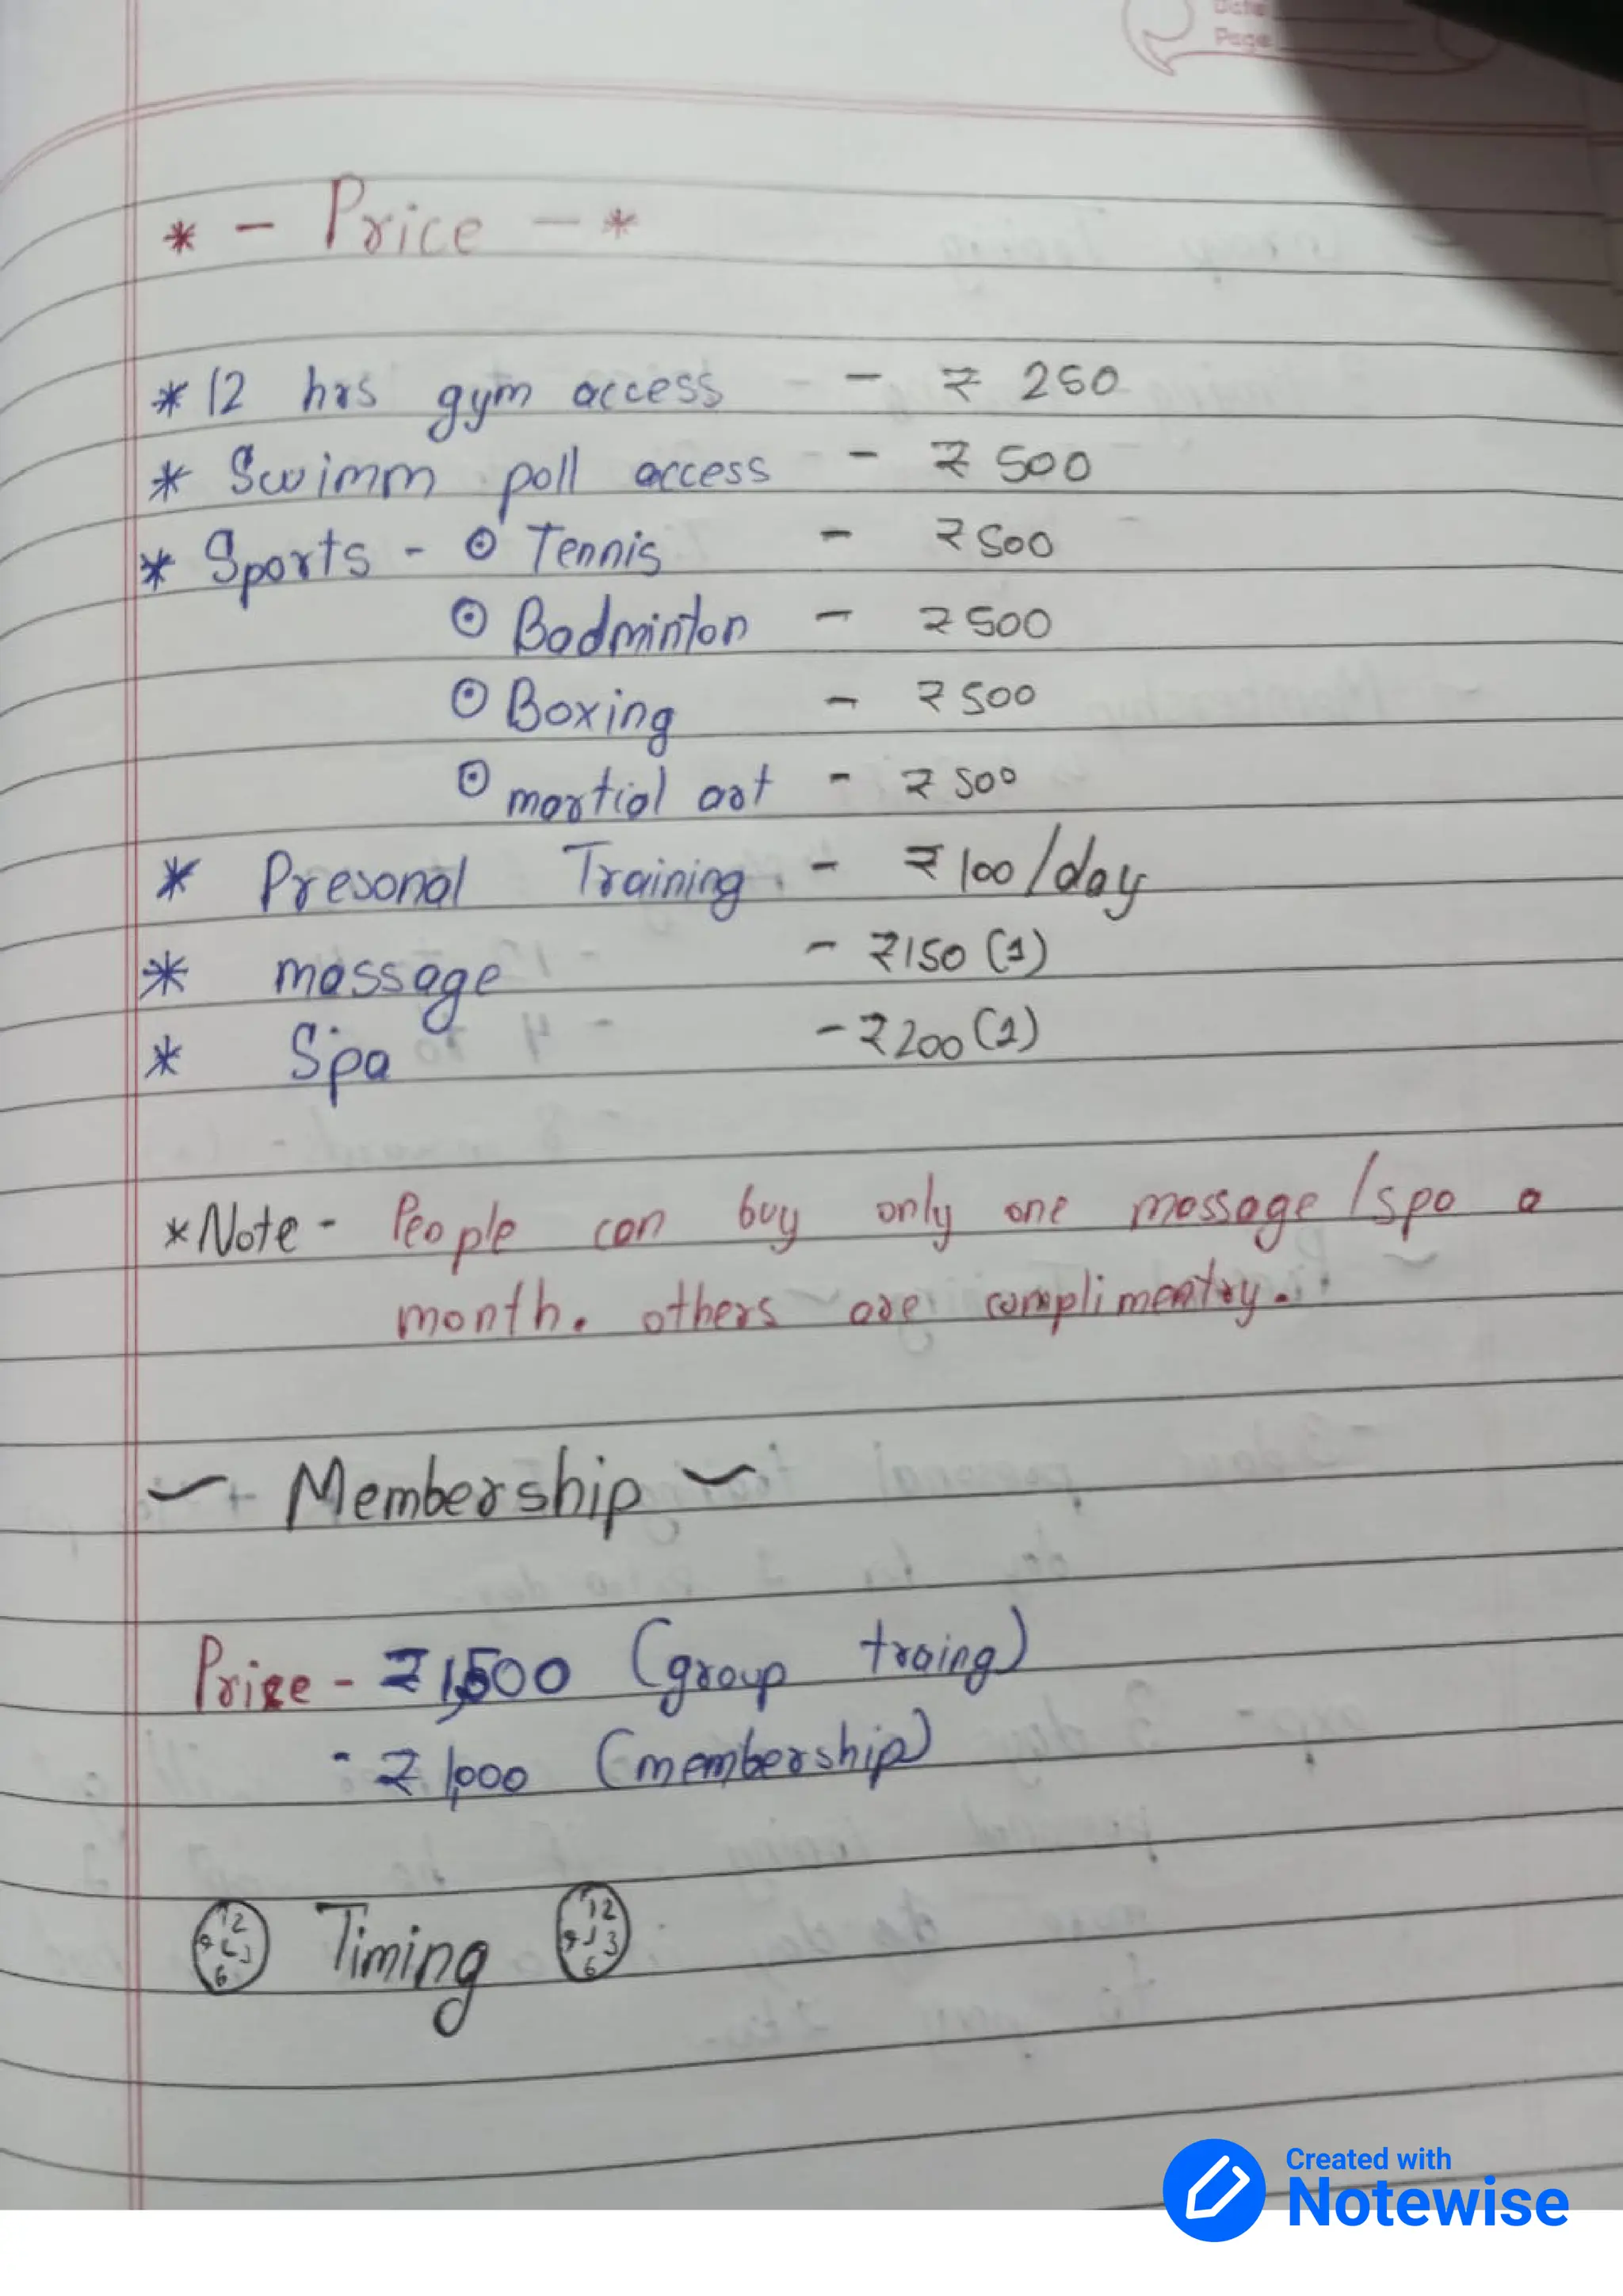 Date
Page
* - Price - *
* 12 hrs gym access - ₹ 250
* Swimm poll access - ₹ 500
* Sports - ⊙ Tennis - ₹ 500
⊙ Badminton - ₹ 500
⊙ Boxing - ₹ 500
⊙ martial art - ₹ 500
* Presonal Training - ₹ 100/day
* massage - ₹150 (1)
* Spa - ₹200 (1)
*Note - People can buy only one massage/spa a
month. others are complimentry.
~ Membership ~
Price - ₹1,500 (group traing)
- ₹1,000 (membership)
Timing
Created with
Notewise